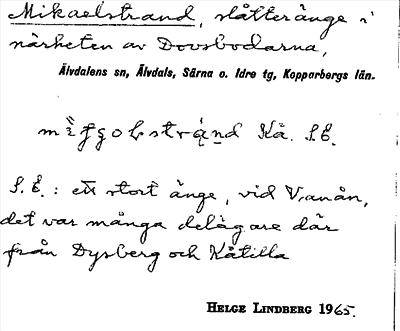 Mikaelstrand, slåtteränge i
närheten av Dovsbodarna,
Älvdalens sn, Älvdals, Särna o. Idre tg, Kopparbergs län.
Kä. S.E.
S.E.: ett stort änge, vid Vanån,
det var många delägare där
från Dysberg och Kåtilla
HELGE LINDBERG 1965.